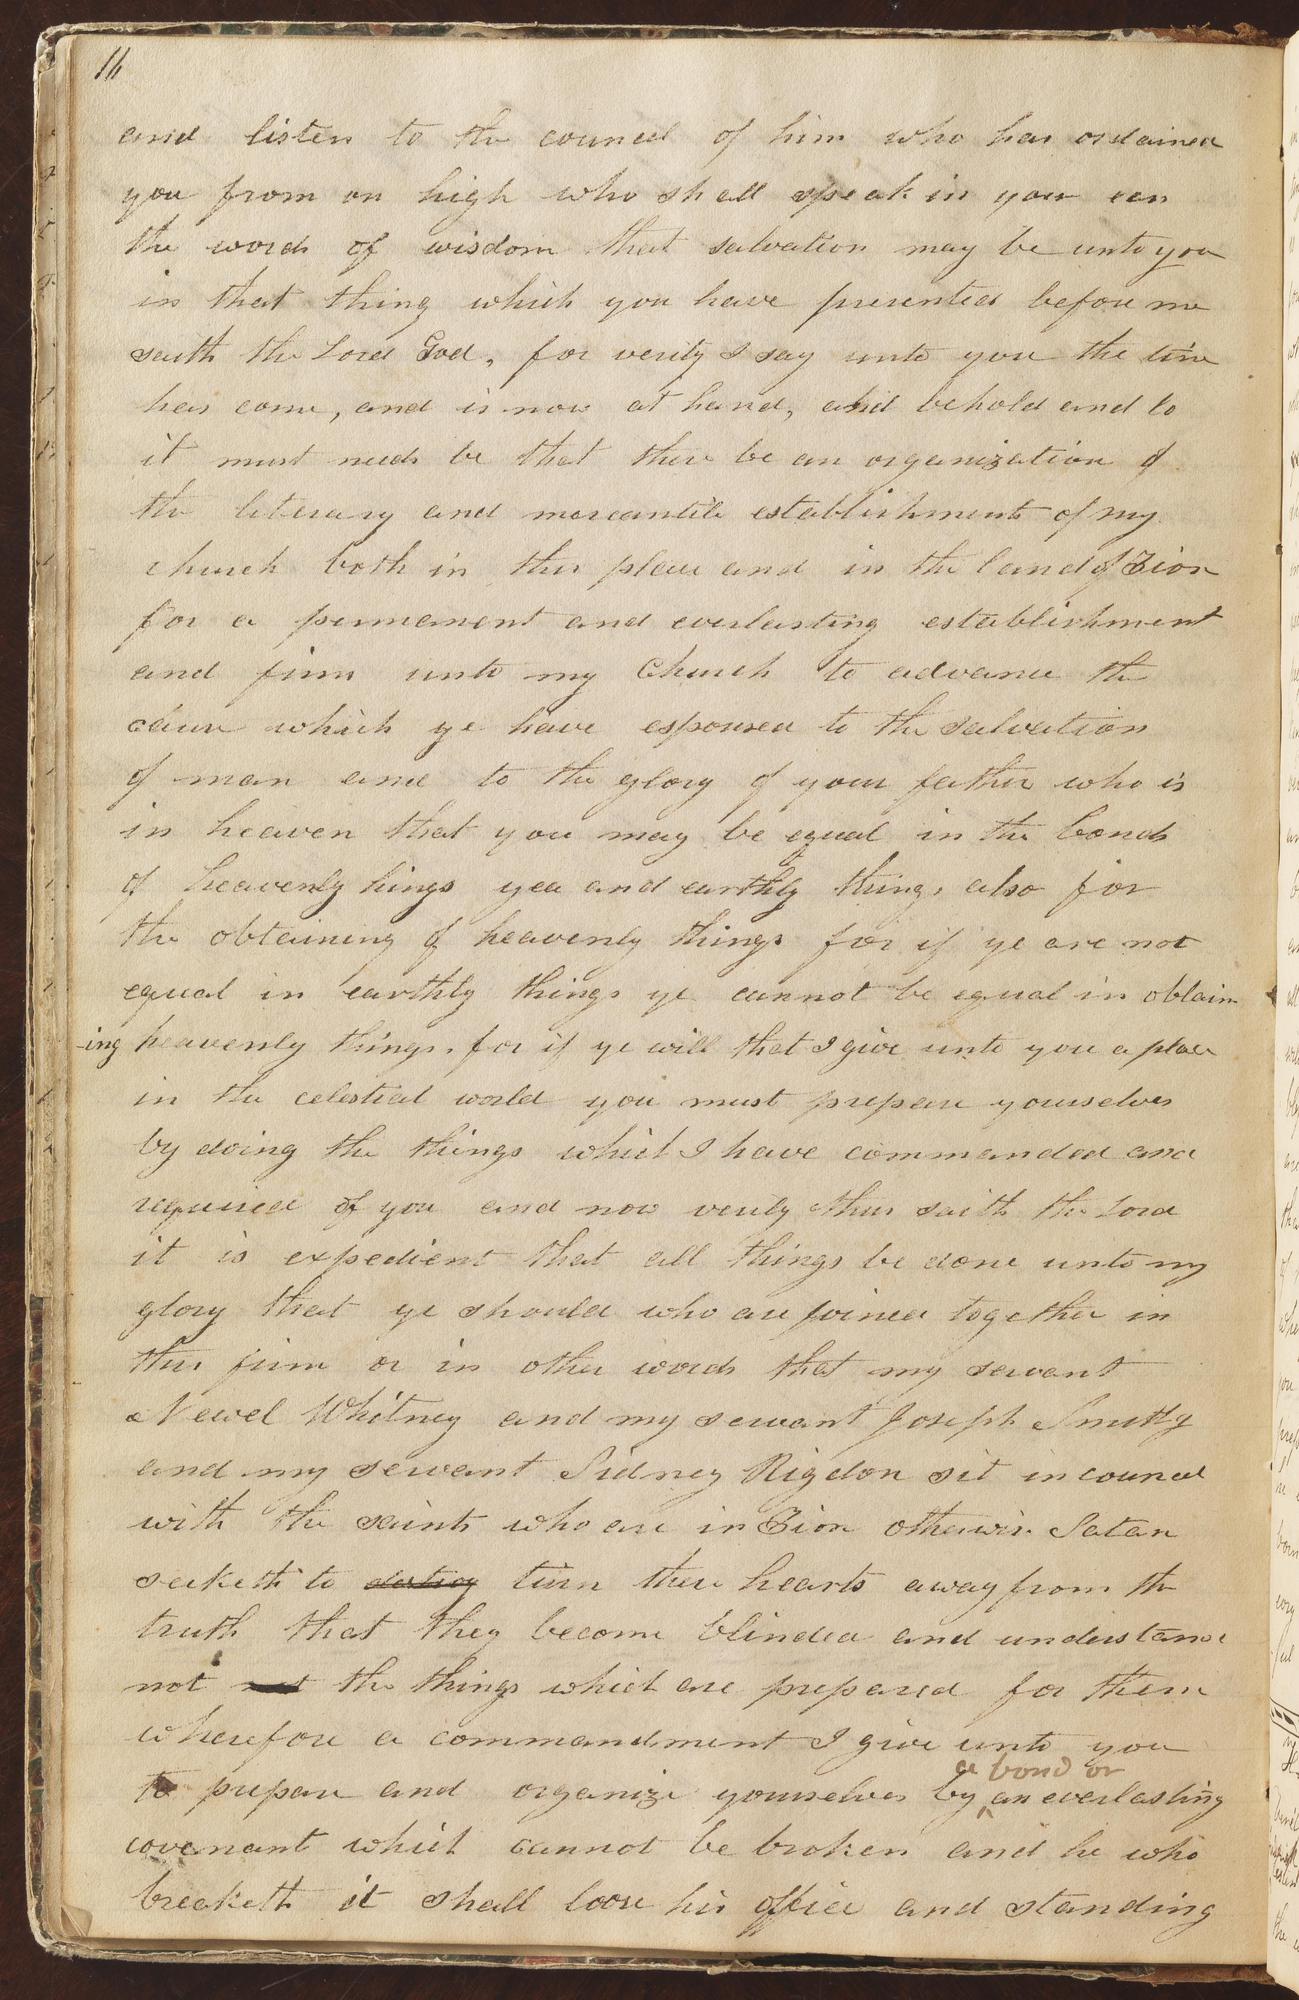 16
and listen to the councel of him who has ordained
you from on high who shall speak in your ears
the words of wisdom that salvation may be unto you
in that thing which you have presented before me
saith the Lord God, for verily I say unto you the time
has come, and is now at hand, and behold and lo
it must needs be that there be an organization of
the literary and mercantile establishments of my
church both in this place and in the land of Zion
for a permanent and everlasting establishment
and firm unto my Church to advance the
cause which ye have espoused to the salvation
of man and to the glory of your father who is
in heaven that you may be equal in the bonds
of heavenly hings yea and earthly things also for
the obtaining of heavenly things for if ye are not
equal in earthly things ye cannot be equal in obtain
-ing heavenly things. for if ye will that I give unto you a place
in the celestial world you must prepare yourselves
by doing the things which I have commanded and
required of you and now verily thus saith the Lord
it is expedient that all things be done unto my
glory that ye should who are joined together in
this firm or in other words that my servant
Newel Whitney and my servant Joseph Smith
and my servant Sidney Rigdon sit in council
with the saints who are in Zion otherwise Satan
seeketh to destroy turn their hearts away from the
truth that they become blinded and understand
not not the things which are prepared for them
wherefore a commandment I give unto you
a bond or
to prepare and organize yourselves by ^ an everlasting
covenant which cannot be broken and he who
breaketh it shall loose his office and standing